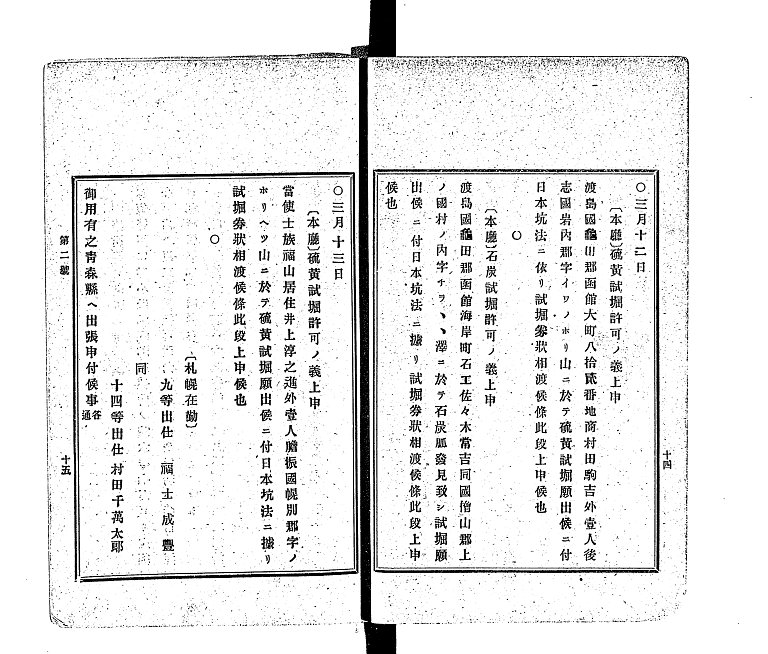 〇三月十二日
〔本廳〕硫黄試堀許可ノ義上申
渡島國龜田郡函館大町八拾貳番地商村田駒吉外壹人後
志國岩內郡字イワノホリ山ニ於テ硫黄試堀願出候ニ付
日本坑法ニ依リ試堀劵狀相渡候條此段上申候也
〇
〔本廳〕石炭試堀許可ノ義上申
渡島國龜田郡函館海岸町石工佐々木常吉同國檜山郡上
ノ國村ノ內字チヲヽ、澤ニ於テ石炭脈發見致シ試堀願
出候ニ付日本坑法ニ據リ試堀劵狀相渡候條此段上申
候也
十四
〇三月十三日
〔本廳〕硫黄試堀許可ノ義上申
當使士族福山居住井上淳之進外壹人膽振國幌別郡字ノ
ホリヘツ山ニ於テ硫黄試堀願出候ニ付日本坑法ニ據リ
試堀劵狀相渡候條此段上申候也
〇
〔札幌在勤〕
九等出仕 福士成豐
同
十四等出仕 村田千萬太郞
御用有之靑森縣ヘ出張申付候事 各通
第二號
十五